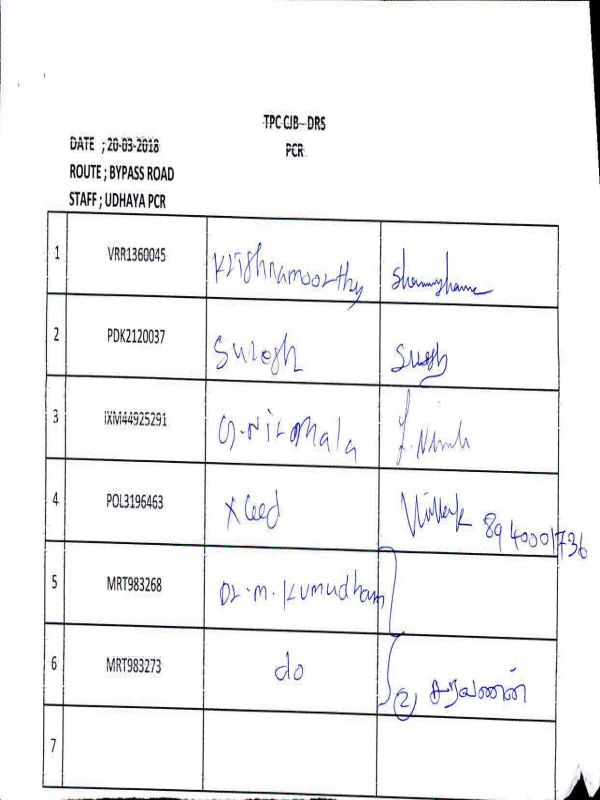 TPC CJB - DRS
DATE ; 20-03-2018
PCR
ROUTE ; BYPASS ROAD
STAFF ; UDHAYA PCR
1 VRR1360045 Krishnamoorthy
2 PDK2120037 Suresh
3 IXM44925291 G. Nirmala
4 POL3196463 Xeed 8940001736
5 MRT983268 Dr. M. Kumudham
6 MRT983273 do ② சரவணன்
7